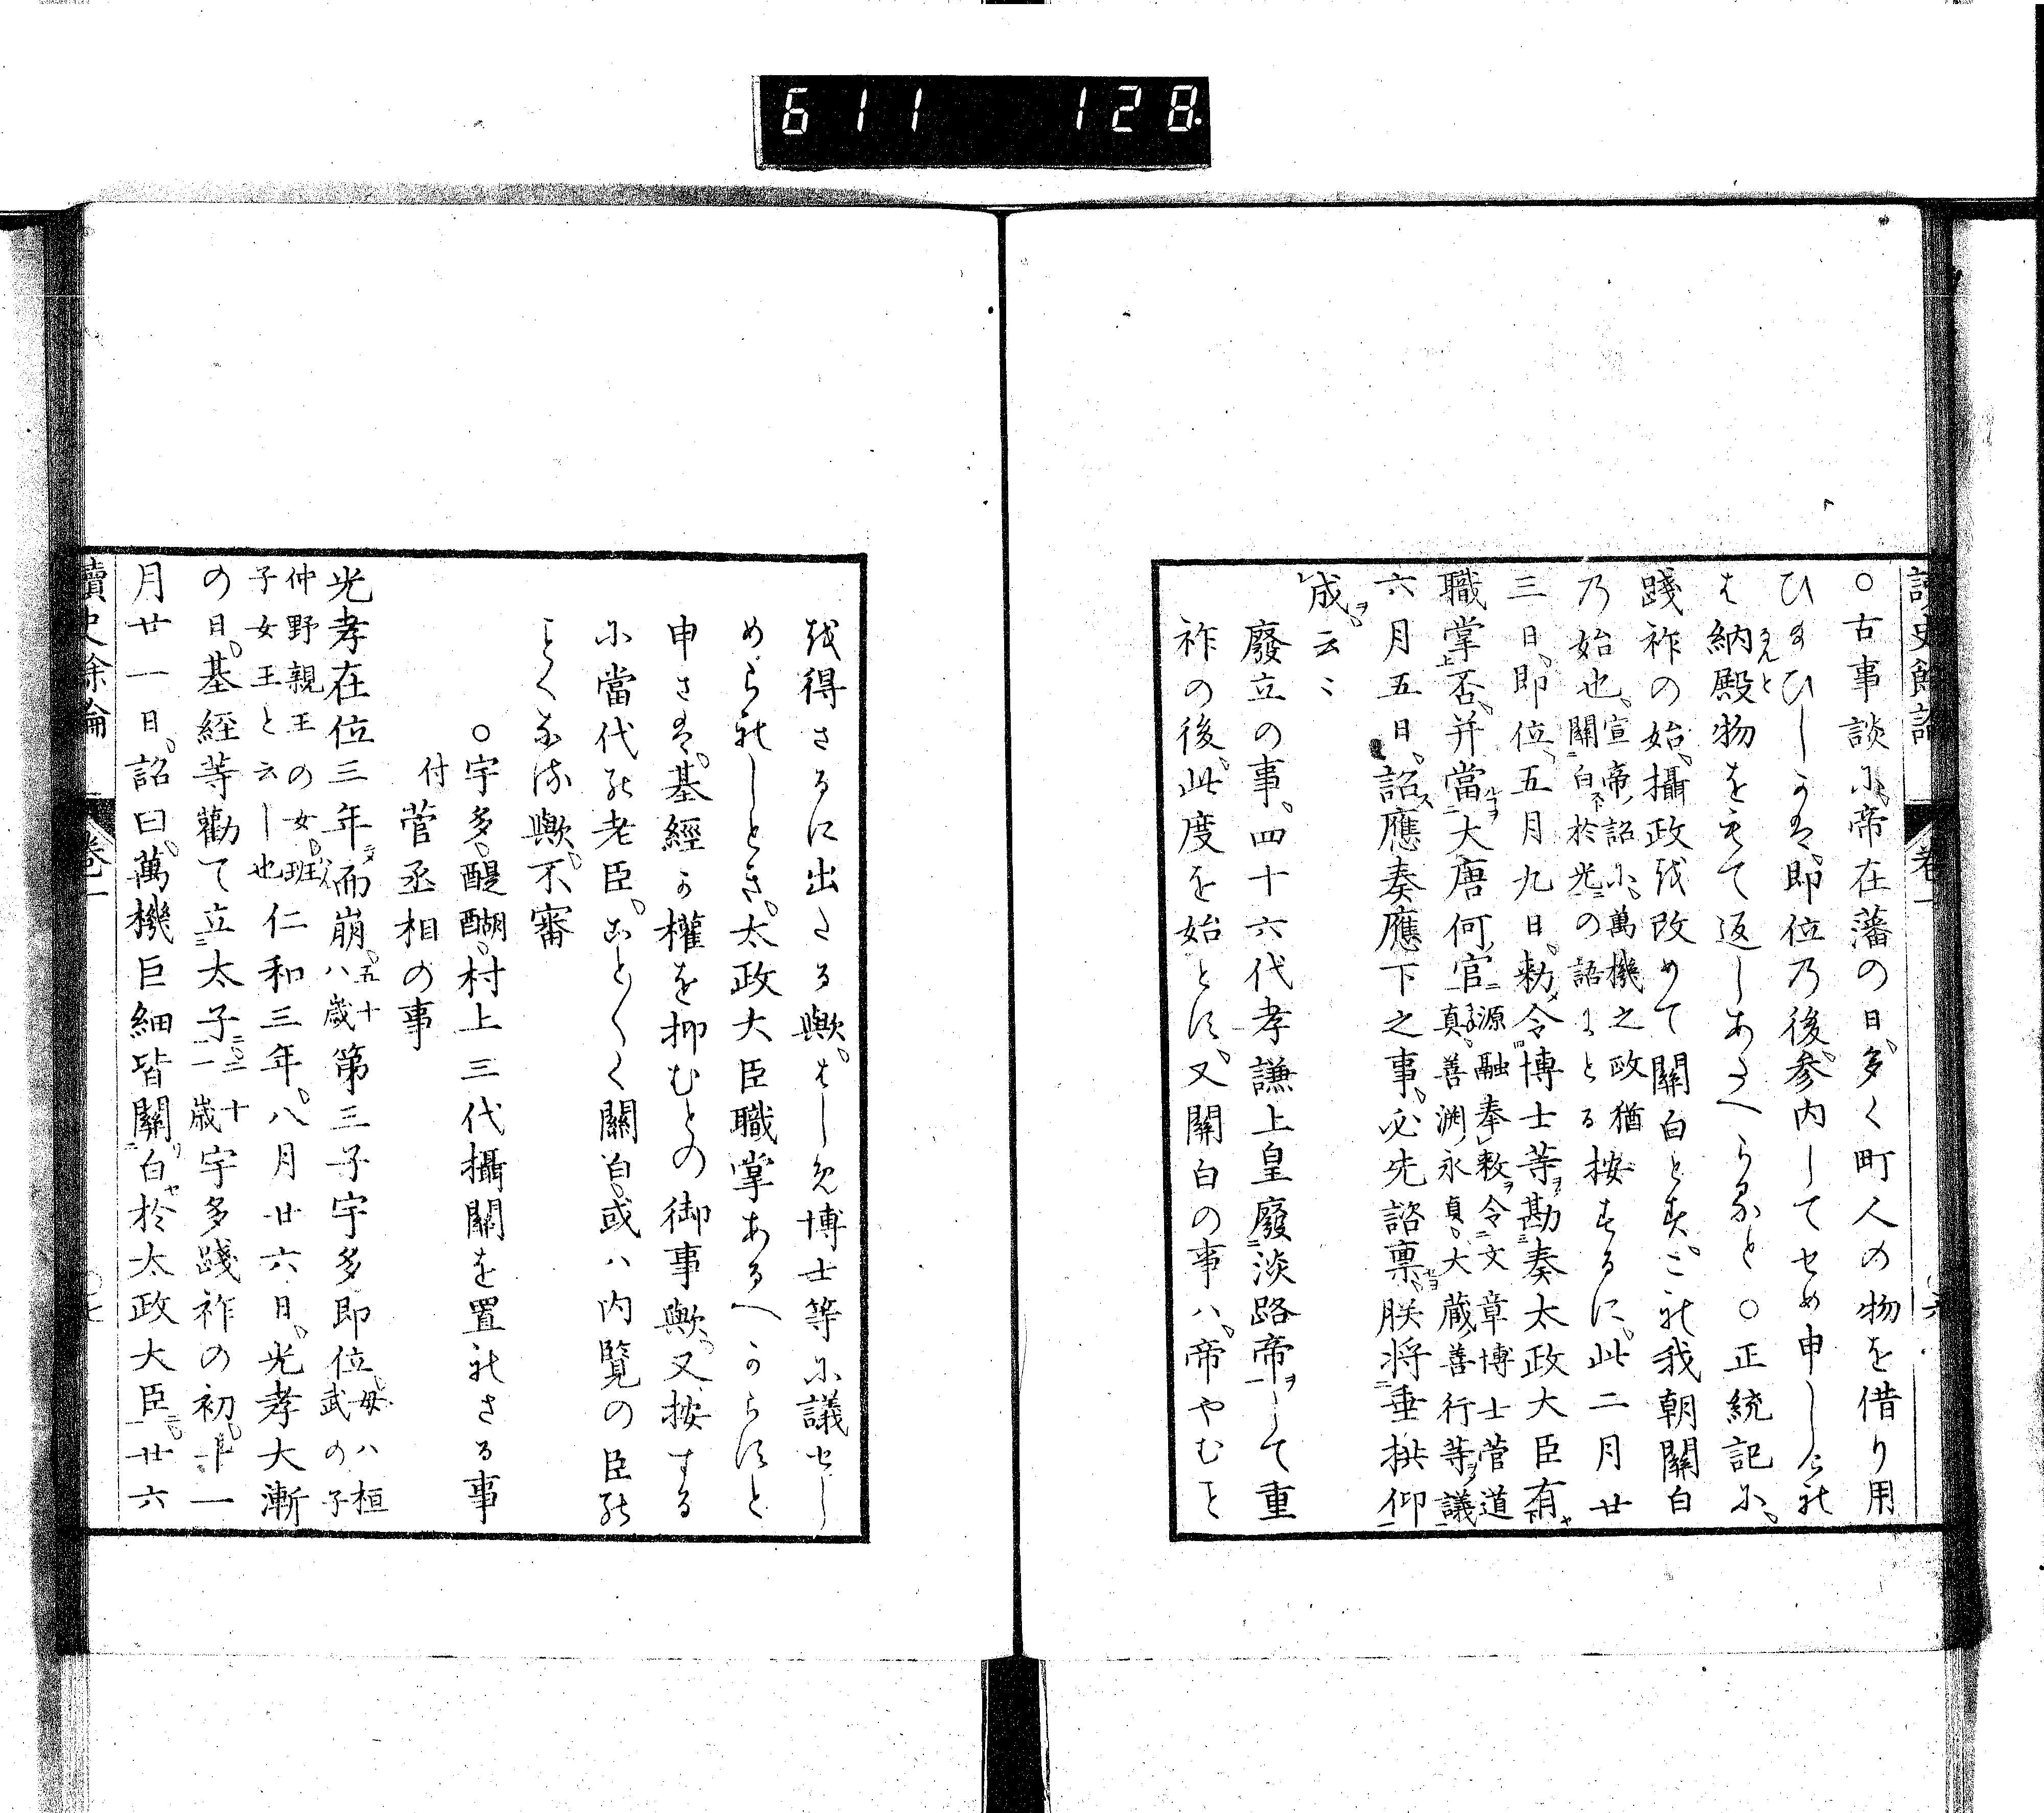 611 128.
讀史餘論 卷一
○古事談に、帝在藩の日、多く町人の物を借り用
ひ給ひしかは、即位の後、参内してせめ申しゝれ
は納殿物をもて返しあたへらると○正統記に、
踐祚の始、攝政を改めて關白とす、これ我朝關白
の始也、宣帝ノ詔に、萬機之政猶關白於光の語によとる按するに、此二月廿
三日、即位、五月九日、勅令博士等勘奏太政大臣有
職掌否、并當大唐何官源融奉敕令文章博士菅道真、善淵永貞、大蔵善行等議
六月五日、詔應奏應下之事、必先諮禀、朕将垂拱仰
成、云〻
廢立の事、四十六代孝謙上皇廢淡路帝して重
祚の後、此度を始とす、又關白の事ハ、帝やむこと
を得さるに出たる歟、はしめ博士等に議せし
められしとき、太政大臣職掌あるへからすと
申さは、基經か權を抑むとの御事歟、又按する
に當代の老臣、ことく〱關白、或ハ内覽の臣の
ことくなる歟、不審
○宇多、醍醐、村上三代攝關を置れさる事
付 菅丞相の事
光孝在位三年而崩、五十八歳第三子宇多即位、母ハ桓武の子
仲野親王の女、班子女王と云し也仁和三年、八月廿六日、光孝大漸
の日、基経等勸て立太子二十一歳宇多踐祚の初、十一
月廿一日、詔曰、萬機巨細皆關白於太政大臣、廿六
讀史餘論 卷一 ○七